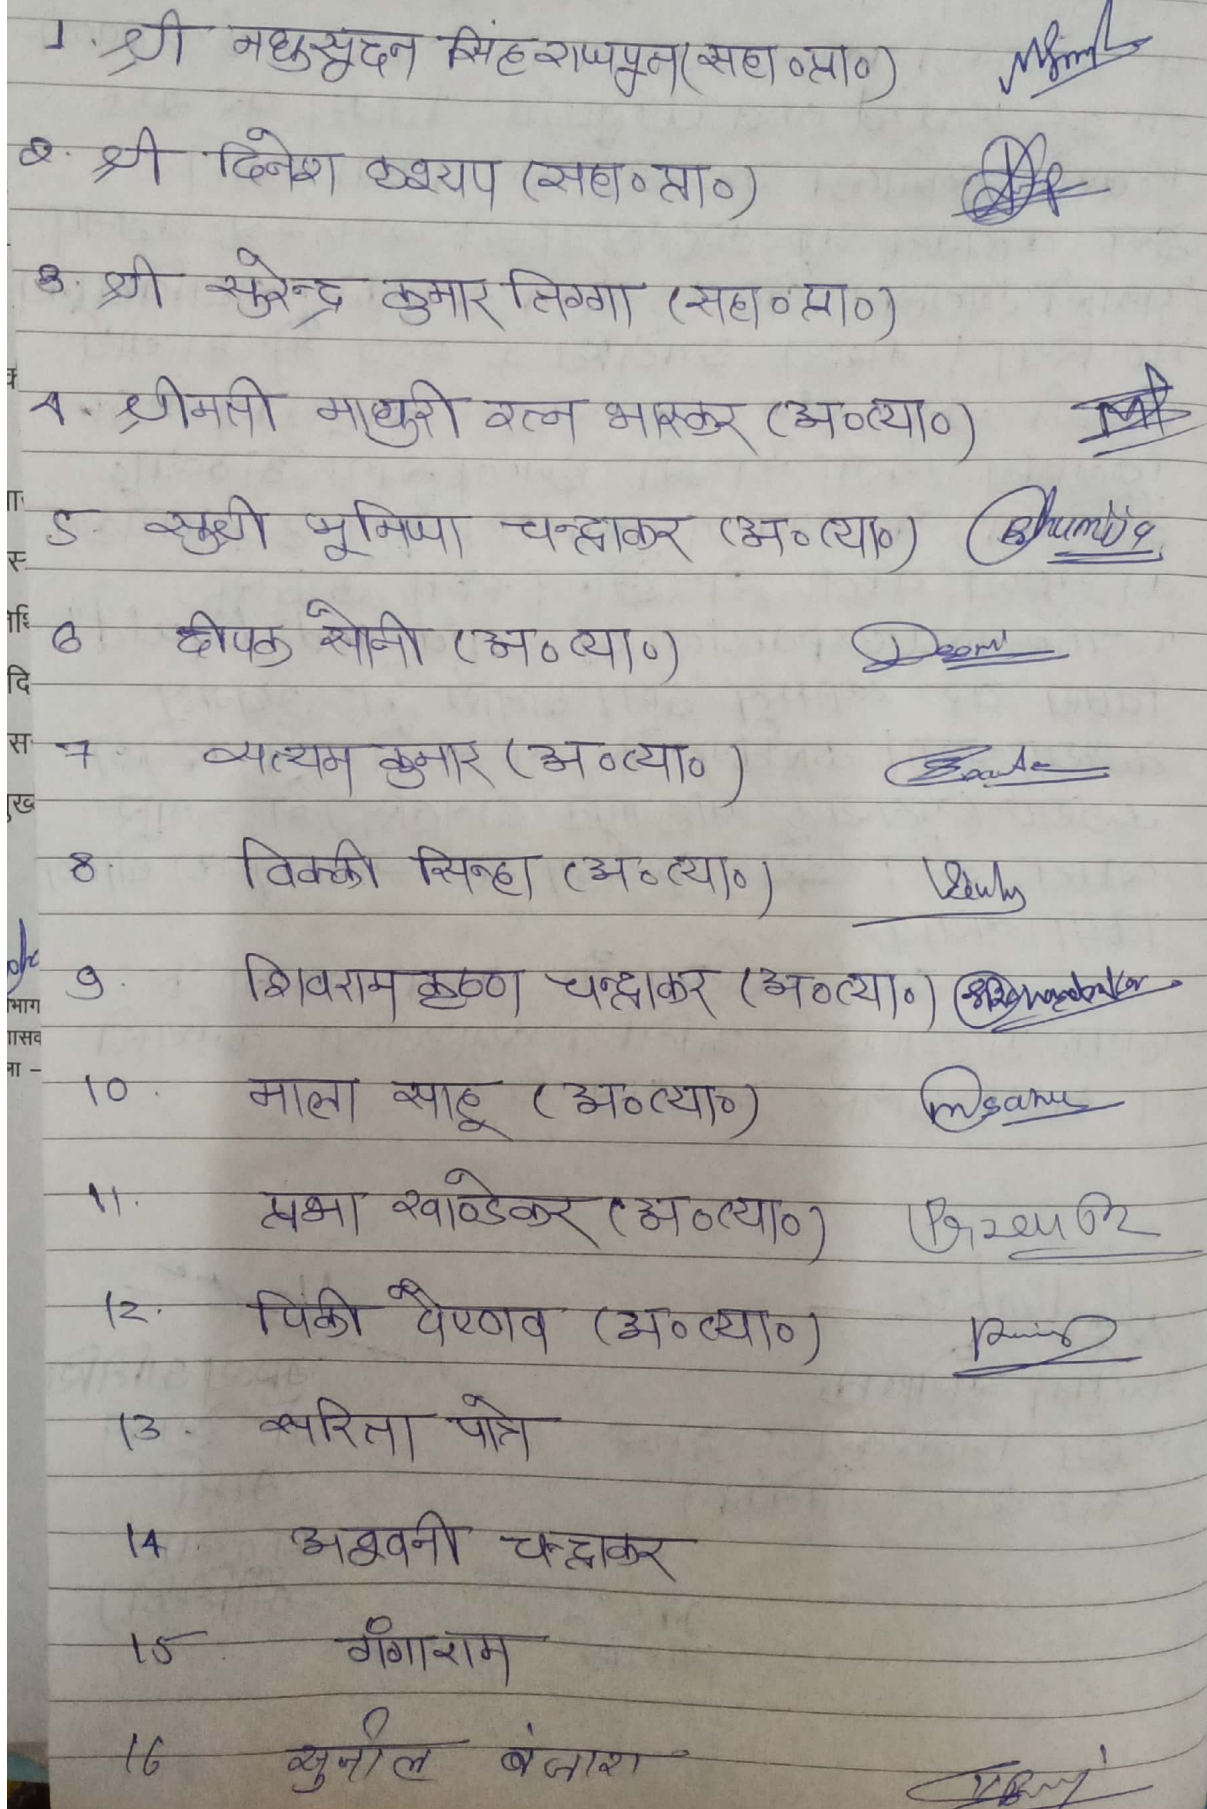 1. श्री मधुसूदन सिंह राजपूत (सहा०प्रा०)
2. श्री दिनेश कश्यप (सहा०प्रा०)
3. श्री सुरेन्द्र कुमार तिग्गा (सहा०प्रा०)
4. श्रीमती माधुरी रत्न भास्कर (अ०व्या०)
5. सुश्री भूमिजा चन्द्राकर (अ०व्या०) Bhumija
6 दीपक सोनी (अ०व्या०)
7 सत्यम कुमार (अ०व्या०)
8. विक्की सिन्हा (अ०व्या०)
9. शिवराम कृष्ण चन्द्राकर (अ०व्या०)
10. माला साहू (अ०व्या०) msahu
11. प्रभा खाण्डेकर (अ०व्या०)
12. पिंकी वैष्णव (अ०व्या०)
13. सरिता पात्रे
14. अश्वनी चन्द्राकर
15 गंगाराम
16 सुनील बंजारा